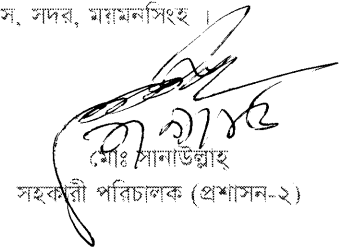 স, সদর, ময়মনসিংহ ।
মোঃ সানাউল্লাহ্
সহকারী পরিচালক (প্রশাসন-২)